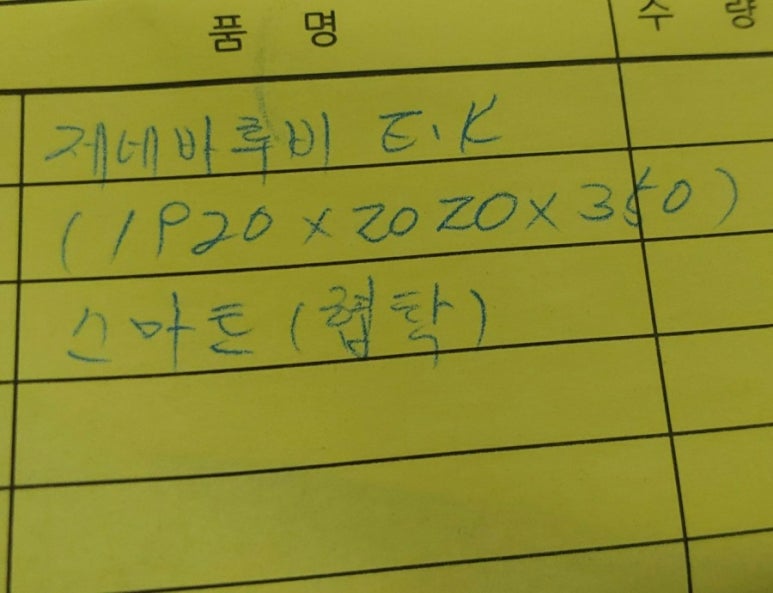 품 명 수 량
제네바루비 E.K
(1920 x 2020 x 350)
스마트 (협탁)